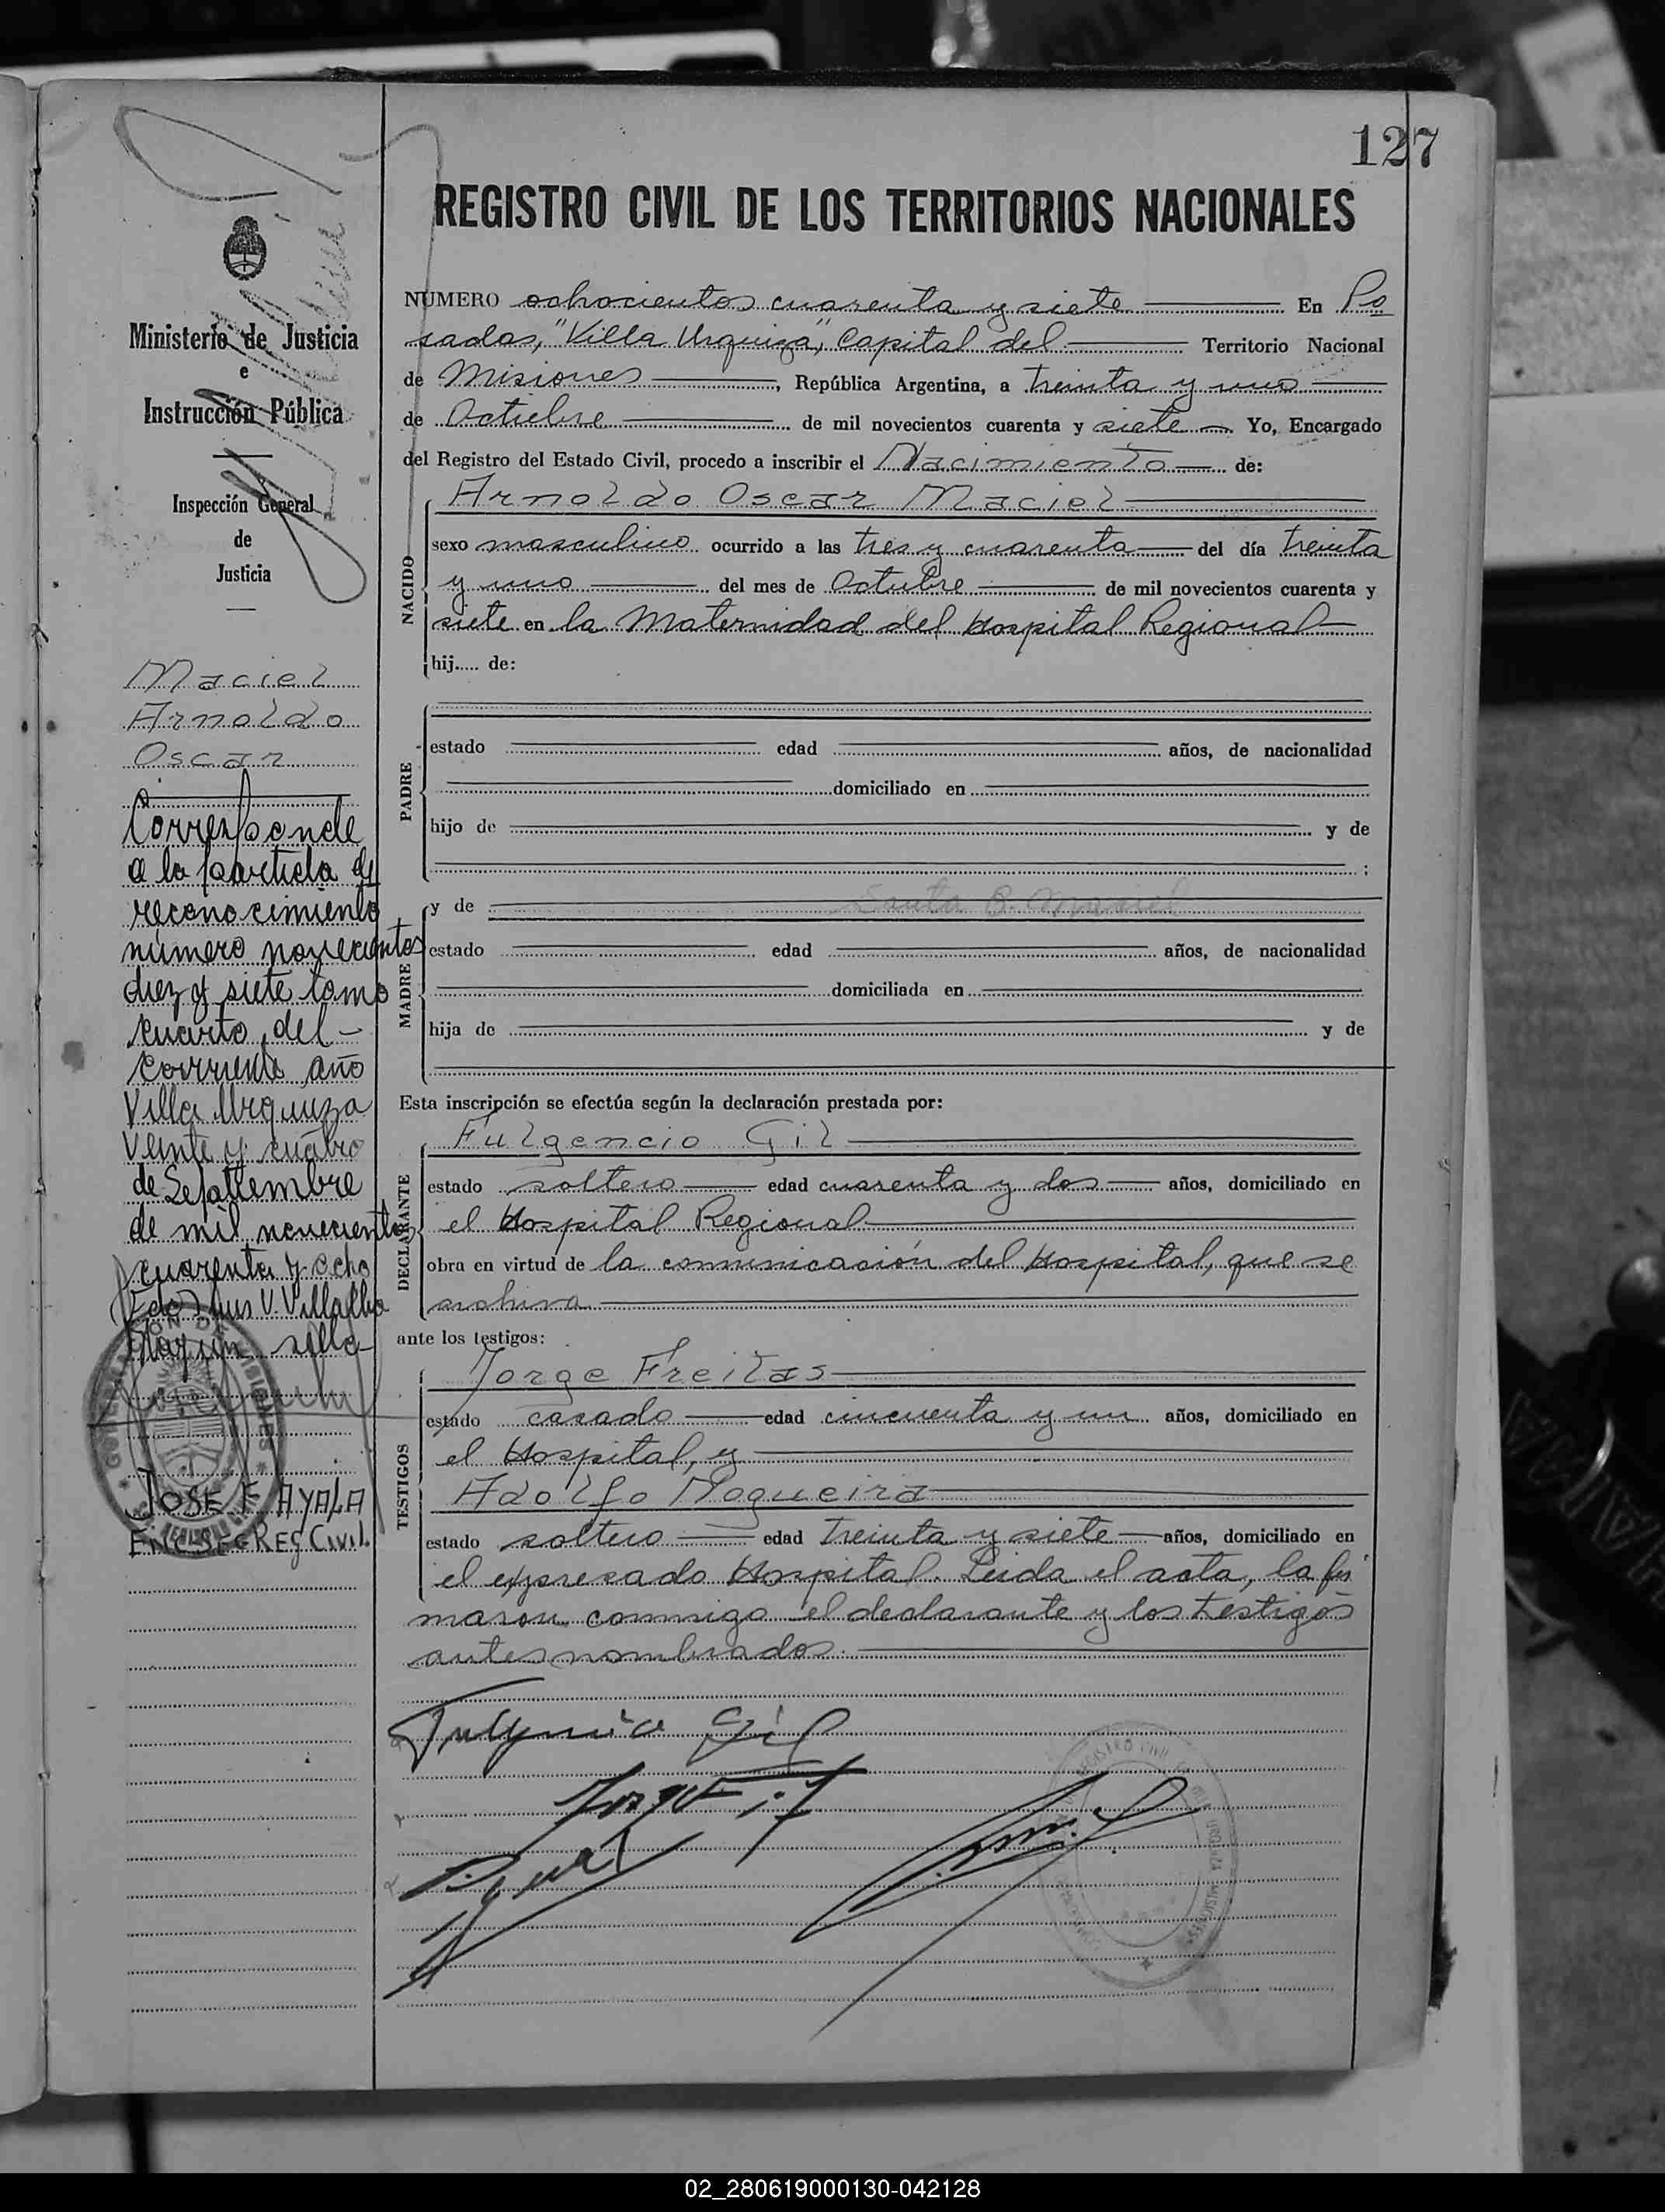 127
REGISTRO CIVIL DE LOS TERRITORIOS NACIONALES
Ministerio de Justicia
e
Instrucción Pública
Inspección General
de
Justicia
Maciel
Arnoldo
Oscar
Corresponde
a la partida de
reconocimiento
número novecientos
diez y siete tomo
cuarto del
corriente año
Villa Urquiza
Veinte y cuatro
de Septiembre
de mil novecientos
cuarenta y ocho
(Fdo) Luis V. Villalba
Hay un sello
JOSE F AYALA
ENC SEC REG CIVIL
NUMERO ochocientos cuarenta y siete En Po
sadas, "Villa Urquiza", Capital del Territorio Nacional
de Misiones, República Argentina, a treinta y uno
de Octubre de mil novecientos cuarenta y siete Yo, Encargado
del Registro del Estado Civil, procedo a inscribir el Nacimiento de:
NACIDO
Arnoldo Oscar Maciel
sexo masculino ocurrido a las tres y cuarenta del día treinta
y uno del mes de Octubre de mil novecientos cuarenta y
siete en la Maternidad del Hospital Regional
hij..... de:
PADRE
estado edad años, de nacionalidad
domiciliado en
hijo de y de
;
MADRE
y de Santa B. Maciel
estado edad años, de nacionalidad
domiciliada en
hija de y de
Esta inscripción se efectúa según la declaración prestada por:
DECLARANTE
Fulgencio Gil
estado soltero edad cuarenta y dos años, domiciliado en
el Hospital Regional
obra en virtud de la comunicación del Hospital, que se
archiva
ante los testigos:
TESTIGOS
Jorge Freitas
estado casado edad cincuenta y un años, domiciliado en
el Hospital, y
Adolfo Nogueira
estado soltero edad treinta y siete años, domiciliado en
el expresado Hospital. Leida el acta, la fir
maron conmigo el declarante y los testigos
antes nombrados.
Fulgencio Gil
02_280619000130-042128